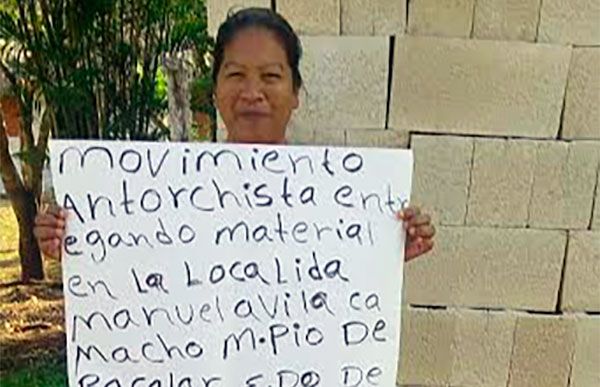 movimiento
Antorchista entr
egando material
en La LocaLida
manuel avila ca
macho m.pio De
Bacalar E.DO De